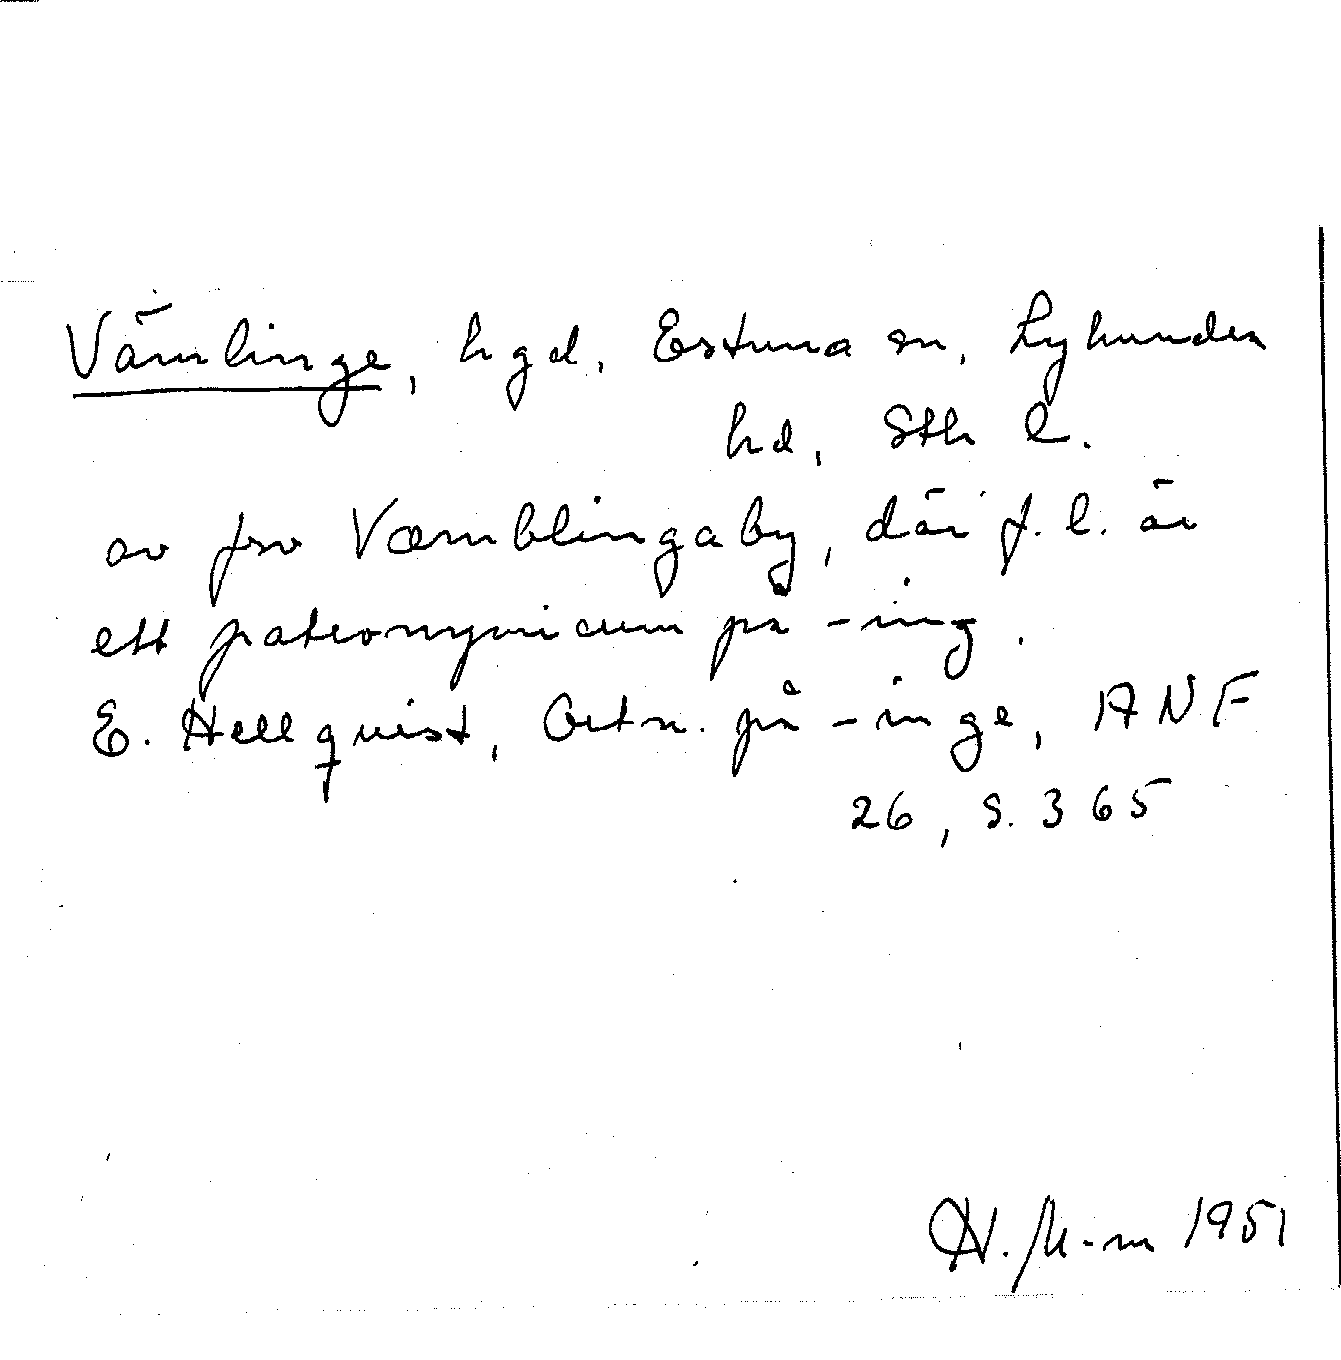 Vämlinge, hgd, Estuna sn, Lyhundra
hd, Sth l.
av fsv Væmblingaby, där f. l. är
ett patronymicum på -ing.
E. Hellquist, Ortn. på -inge, ANF
26, s. 365
H. M-m 1951